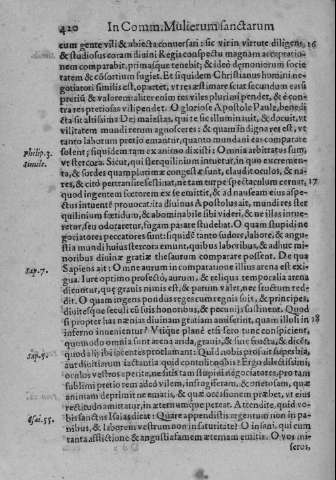 420 In Comm. Mulierum sanctarum
cum gente vili & abiecta conuersari: sic vir in virtute diligens, 16
& studiosus coram diuini Regis conspectu magnam acceptatio-
nem comparabit, primasque tenebit; & ideò dæmoniorum socie
tatem & cōsortium fugiet. Et siquidem Christianus homini ne-
gotiatori similis est, oportet, vt res æstimare sciat secundum earū
pretiū & valorem: aliter enim res viles pluris pendet, & è cont-
ra res pretiosas vilipendet. O gloriose Apostole Paule, benedi
cta sit altissima Dei maiestas, qui te sic illuminauit, & docuit, vt
vilitatem mundi rerum agnosceres: & quam indigna res est, vt
tanto laborum pretio emantur, quanto mundani eas comparare
Philip.3. solent; siquidem tam ex animo dixisti: Omnia arbitratus sum,
simile. vt stercora. Sicut, qui sterquilinium intuetur, in quo excremen-
ta, & sordes quamplurimæ congestæ sunt, claudit oculos, & na-
res, & citò pertransire festinat, ne tam turpe spectaculum cernat, 17
quod ingentem fœtorem ex se emittit, & ad nauseam eius aspe-
ctus intuentē prouocat: ita diuinus Apostolus ait, mundi res ster
quilinium fœtidum, & abominabile sibi videri, & ne illas intue-
retur, seu odoraretur, fugam parare studebat. O quam stupidi ne
gotiatores peccatores sunt: siquidē tanto sudore, labore, & angu-
stia mundi huius stercora emunt, quibus laboribus, & adhuc mi-
noribus diuinæ gratiæ thesaurum comparare possent. De qua
Sap.7. Sapiens ait: Omne aurum in comparatione illius arena est exi-
gua. Iure optimo profectò, aurum, & reliqua temporalia arena
dicuntur, quę grauis nimis est, & parum valet, nec fructum red-
dit. O quam ingens pondus reges cum regnis suis, & principes,
diuitesque seculi cū suis honoribus, & pecunijs sustinent. Quod
si propter has nænias diuinam gratiam amiserint, quam illis in 18
inferno inuenientur? Vtique planè etsi sero tunc conspicient,
quomodo omnia sunt arena arida, grauis, & sine fructu, & dicēt,
Sap.5. quod alij sibi ingentes proclamant: Quid nobis profuit superbia,
aut diuitiarum iactantia quid contulit nobis? Ergo dilectissimi,
oculos vestros aperite, ne sitis tam stupidi negociatores, pro tam
sublimi pretio rem adeò vilem, infrugiferam, & onerosam, quæ
animam deprimit ematis, & quæ occasionem præbet, vt eius
rectitudo amittatur, in æternumque pereat. Attendite, quid vo-
Esai.55. bis sanctus Isaias dicat: Quare appenditis argentum non in pa-
nibus, & laborem vestrum non in saturitate? O insani, qui cum
tanta afflictione & angustia famem æternam emitis. O vos mi-
seros,